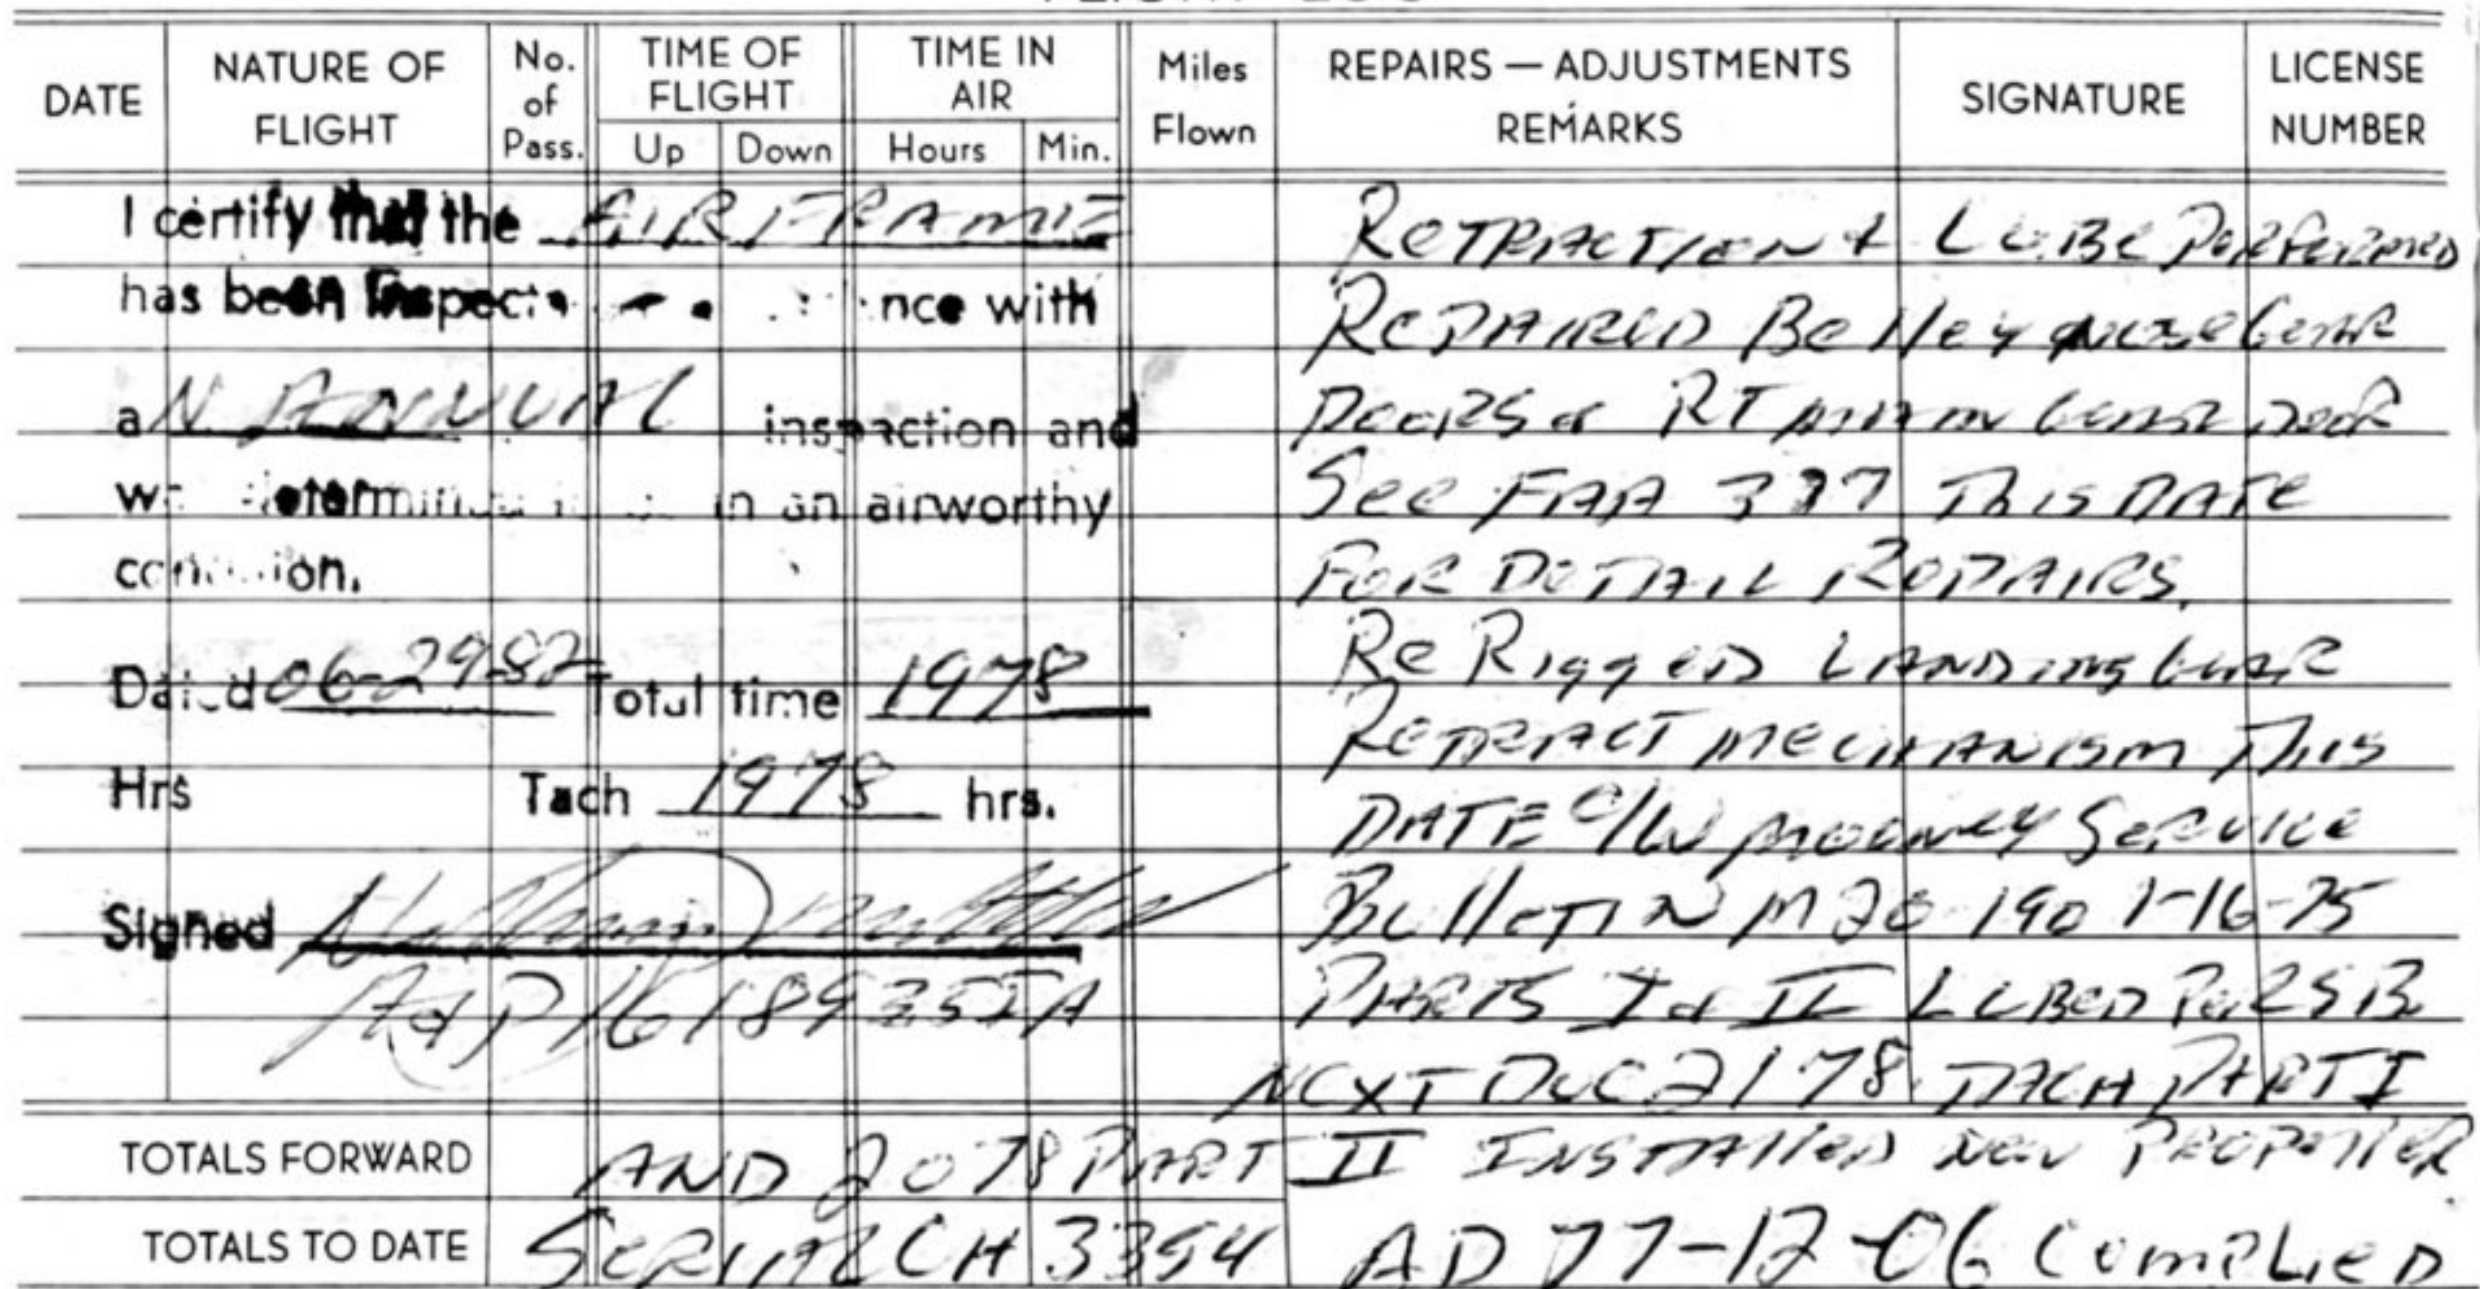 DATE
NATURE OF FLIGHT
No. of Pass.
TIME OF FLIGHT
Up
Down
TIME IN AIR
Hours
Min.
Miles Flown
REPAIRS — ADJUSTMENTS REMARKS
SIGNATURE
LICENSE NUMBER
I certify that the AIRFRAME
has been inspec nce with
aN ANNUAL inspection and
in an airworthy
Dated 06-29-82 Total time 1978
Hrs Tach 1978 hrs.
Signed
A&P IA
RETRACTION & LUBE PERFORMED
REPAIRED Belley nose Gear
DOORS & RT main Gear Door
See FAA 337 This DATE
FOR DETAIL REPAIRS.
Re Rigged LANDing Gear
RETRACT MECHANISM This
DATE C/W Mooney Service
BulleTIN M20-190 1-16-75
PARTS I & II LUBED Per SB
NEXT DUE 2178 TACH PART I
TOTALS FORWARD
AND 2078 PART II INSTAlleD New PROPeller
TOTALS TO DATE
SERIAL CH 3354 AD 77-12-06 COMPLIED